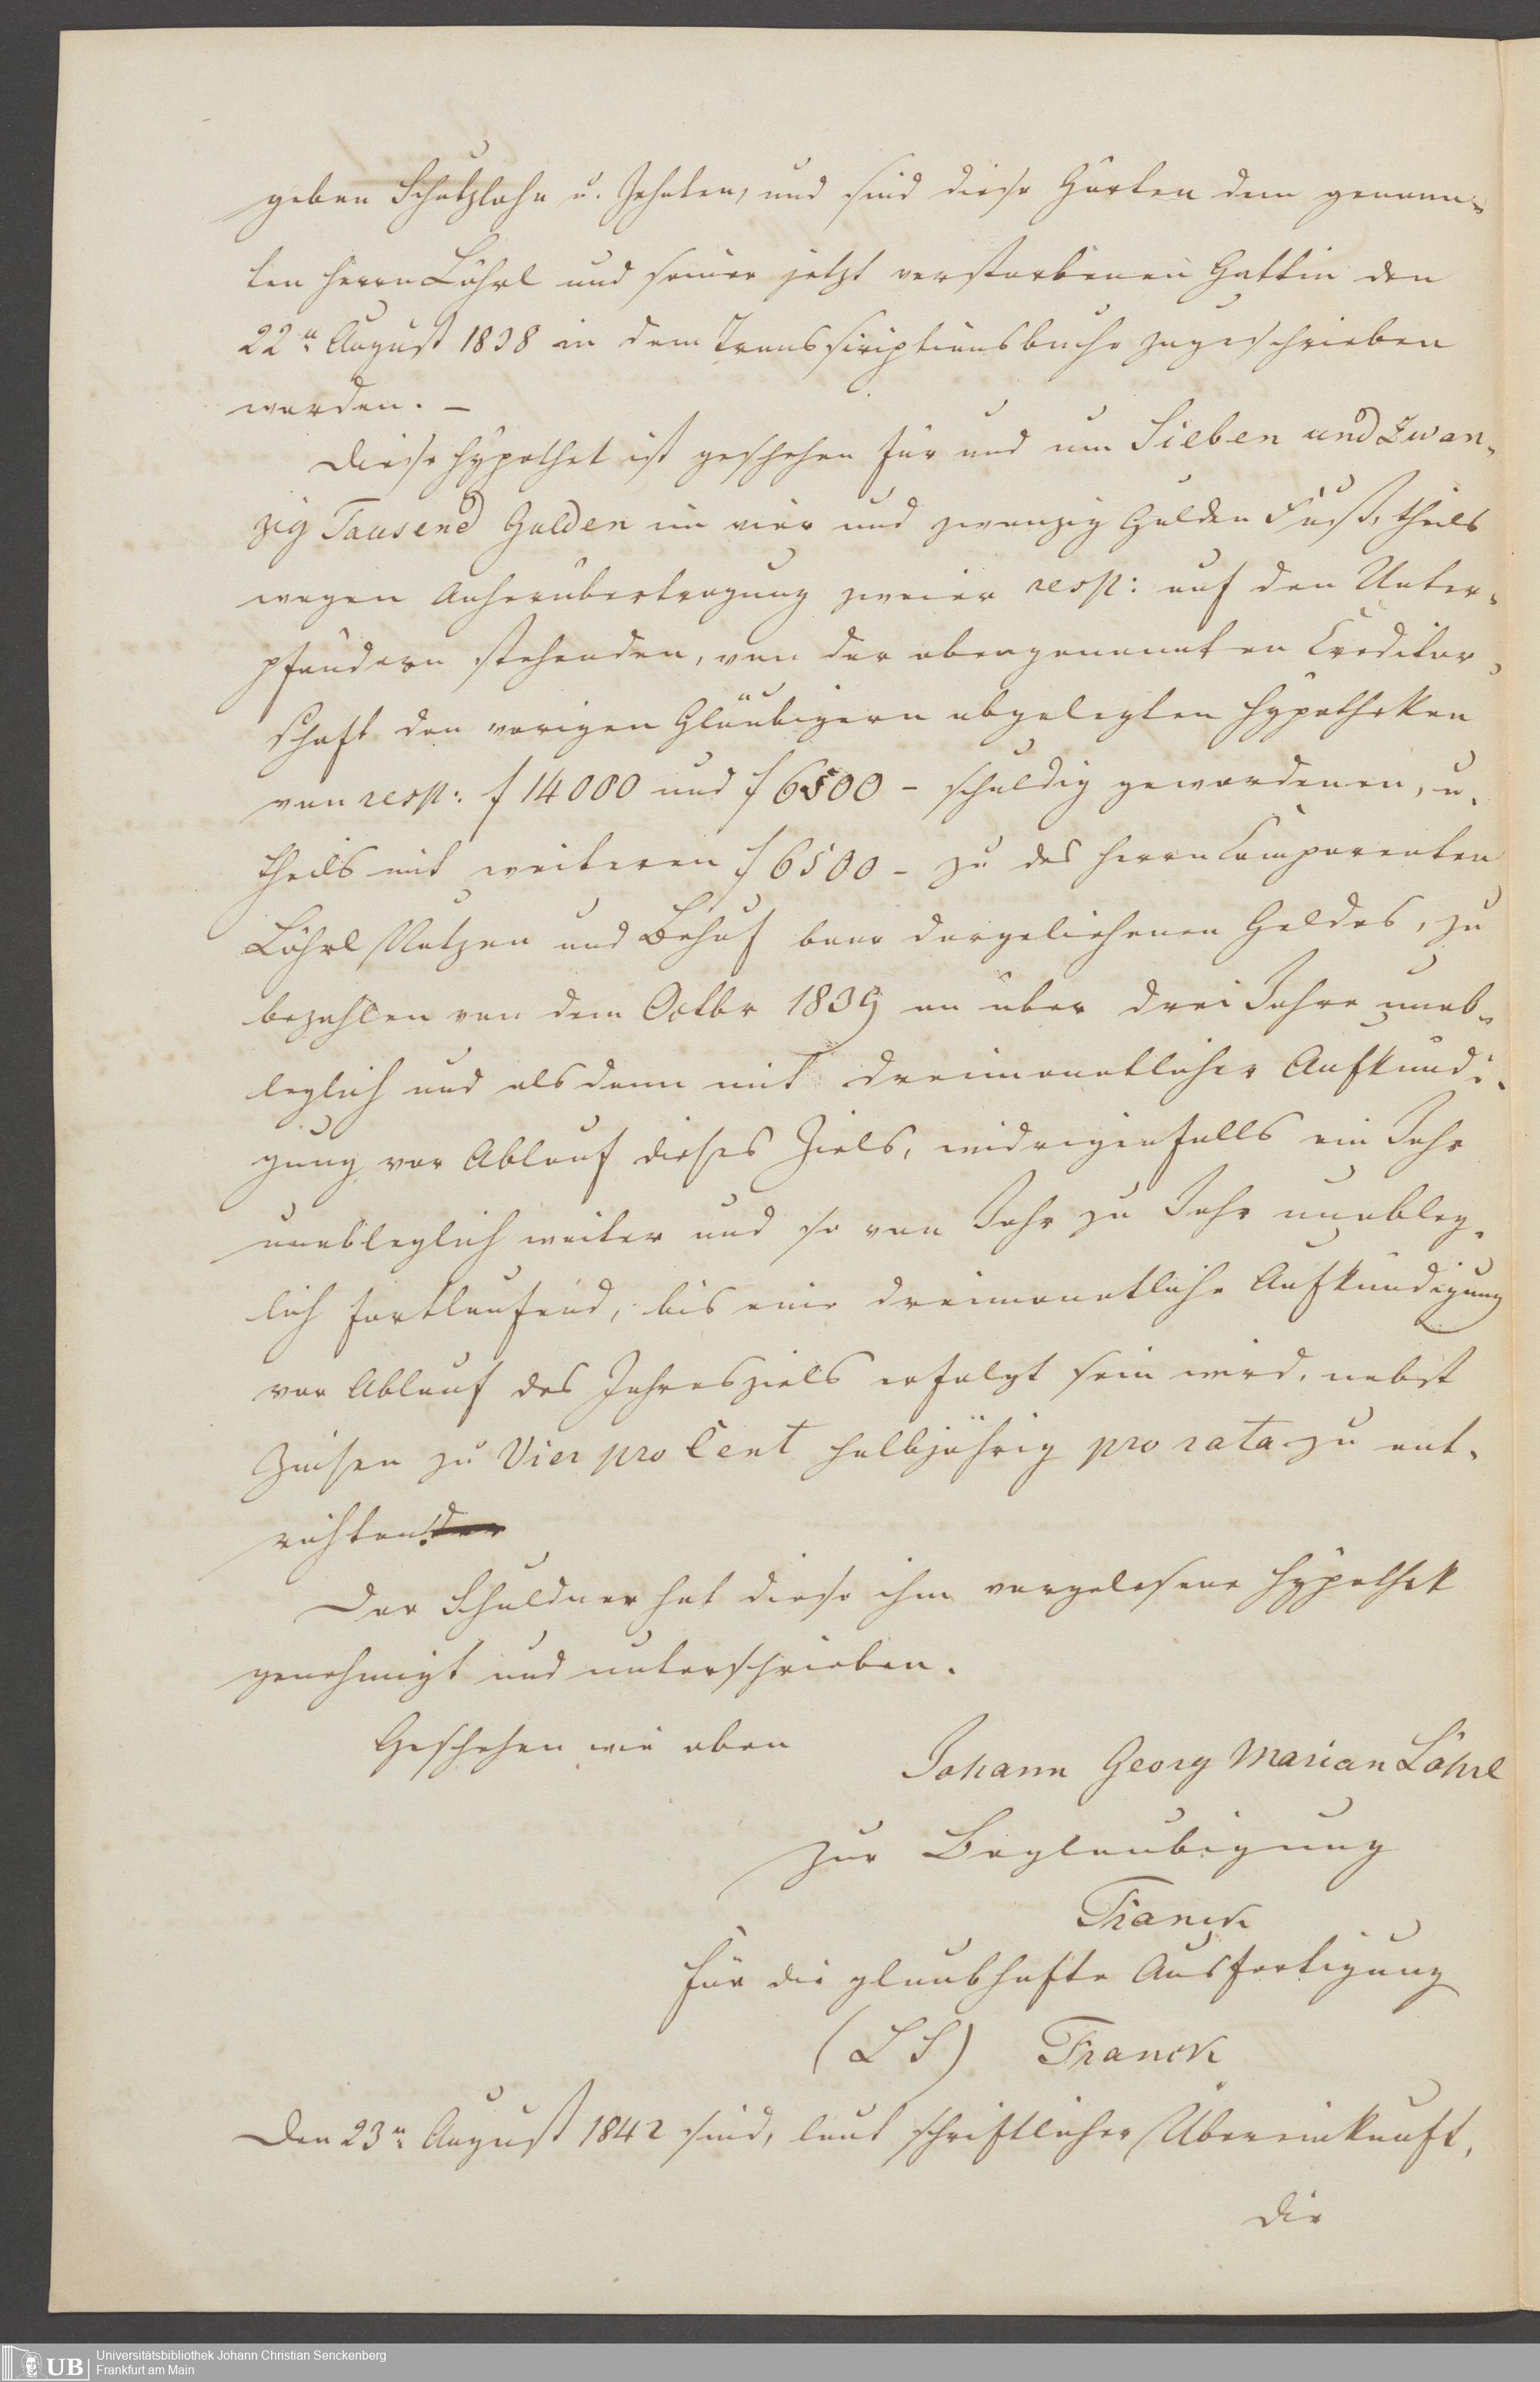 geben Schützlohn u. Zehnten, und sind diese Gärten dem genann-
ten Herrn Löhrl und seiner jetzt verstorbenen Gattin den
22n August 1838 in dem Transscriptionsbuche zugeschrieben
worden. –
Diese Hypothek ist geschehen für und um Sieben und Zwan-
zig Tausend Gulden im vier und zwanzig Gulden Fuß, theils
wegen Anherübertragung zweier resp: auf den Unter-
pfändern stehenden, von der obengenannten Creditor-
schaft den vorigen Gläubigern abgelegten Hypotheken
von resp: f 14000 und f 6500 – schuldig gewordenen, u.
theils mit weiteren f 6500 – zu des Herrn Comparenten
Löhrl Nutzen und Behuf baar dargeliehenen Geldes, zu
bezahlen von dem Octbr 1839 an über drei Jahre unab-
leglich und alsdann mit dreimonatlicher Aufkündi-
gung vor Ablauf dieses Ziels, widrigenfalls ein Jahr
unableglich weiter und so von Jahr zu Jahr unableg-
lich fortlaufend, bis eine dreimonatliche Aufkündigung
vor Ablauf des Jahresziels erfolgt sein wird, nebst
Zinsen zu Vier pro Cent halbjährig pro rata zu ent-
richten.
Der Schuldner hat diese ihm vorgelesene Hypothek
genehmigt und unterschrieben.
Geschehen wie oben
Johann Georg Marian Löhrl
Zur Beglaubigung
Franck
Für die glaubhafte Ausfertigung
(L S) Franck
Den 23n August 1842 sind, laut schriftlicher Übereinkunft,
die
UB Universitätsbibliothek Johann Christian Senckenberg
Frankfurt am Main